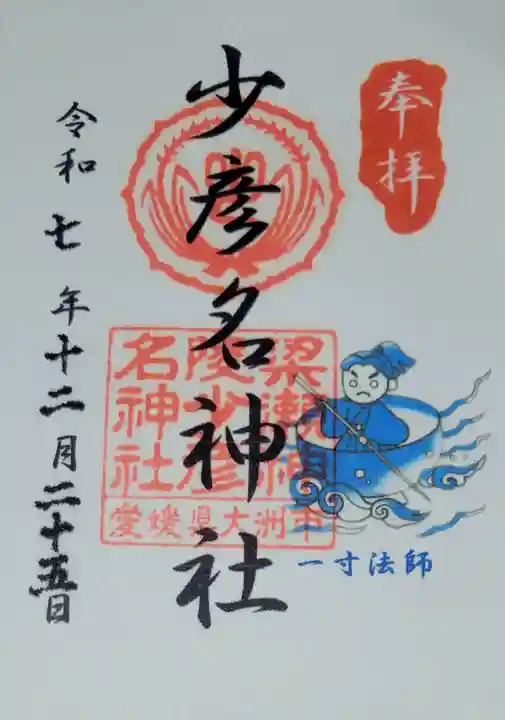 奉拝
少彦名神社
梁瀬神
陵少彦
名神社
愛媛県大洲市
一寸法師
令和七年十二月二十五日